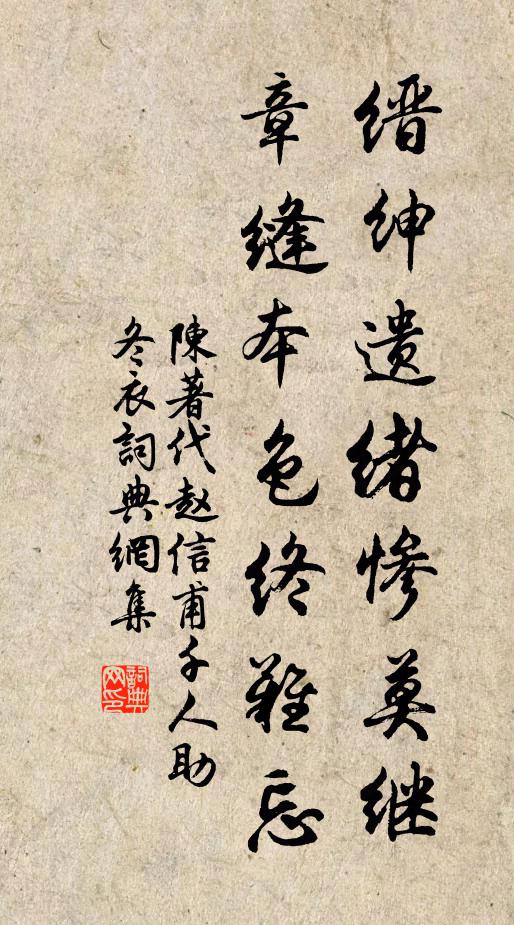 缙紳遗绪惨莫继
章縫本色终難忘
陳著代赵信甫千人助
冬衣詞典網集
詞典
网印